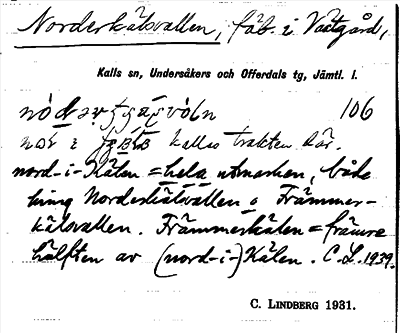 Norderkälsvallen, fäb. i Vastgård,
Kalls sn, Undersåkers och Offerdals tg, Jämtl. l.
106
nor i kallas trakten där.
nord-i-Kälen = hela utmarken, både
kring Norderkälsvallen o Främmer-
kälsvallen. Främmerkälen = främre
hälften av (nord-i-)Kälen. C. L. 1939.
C. LINDBERG 1931.